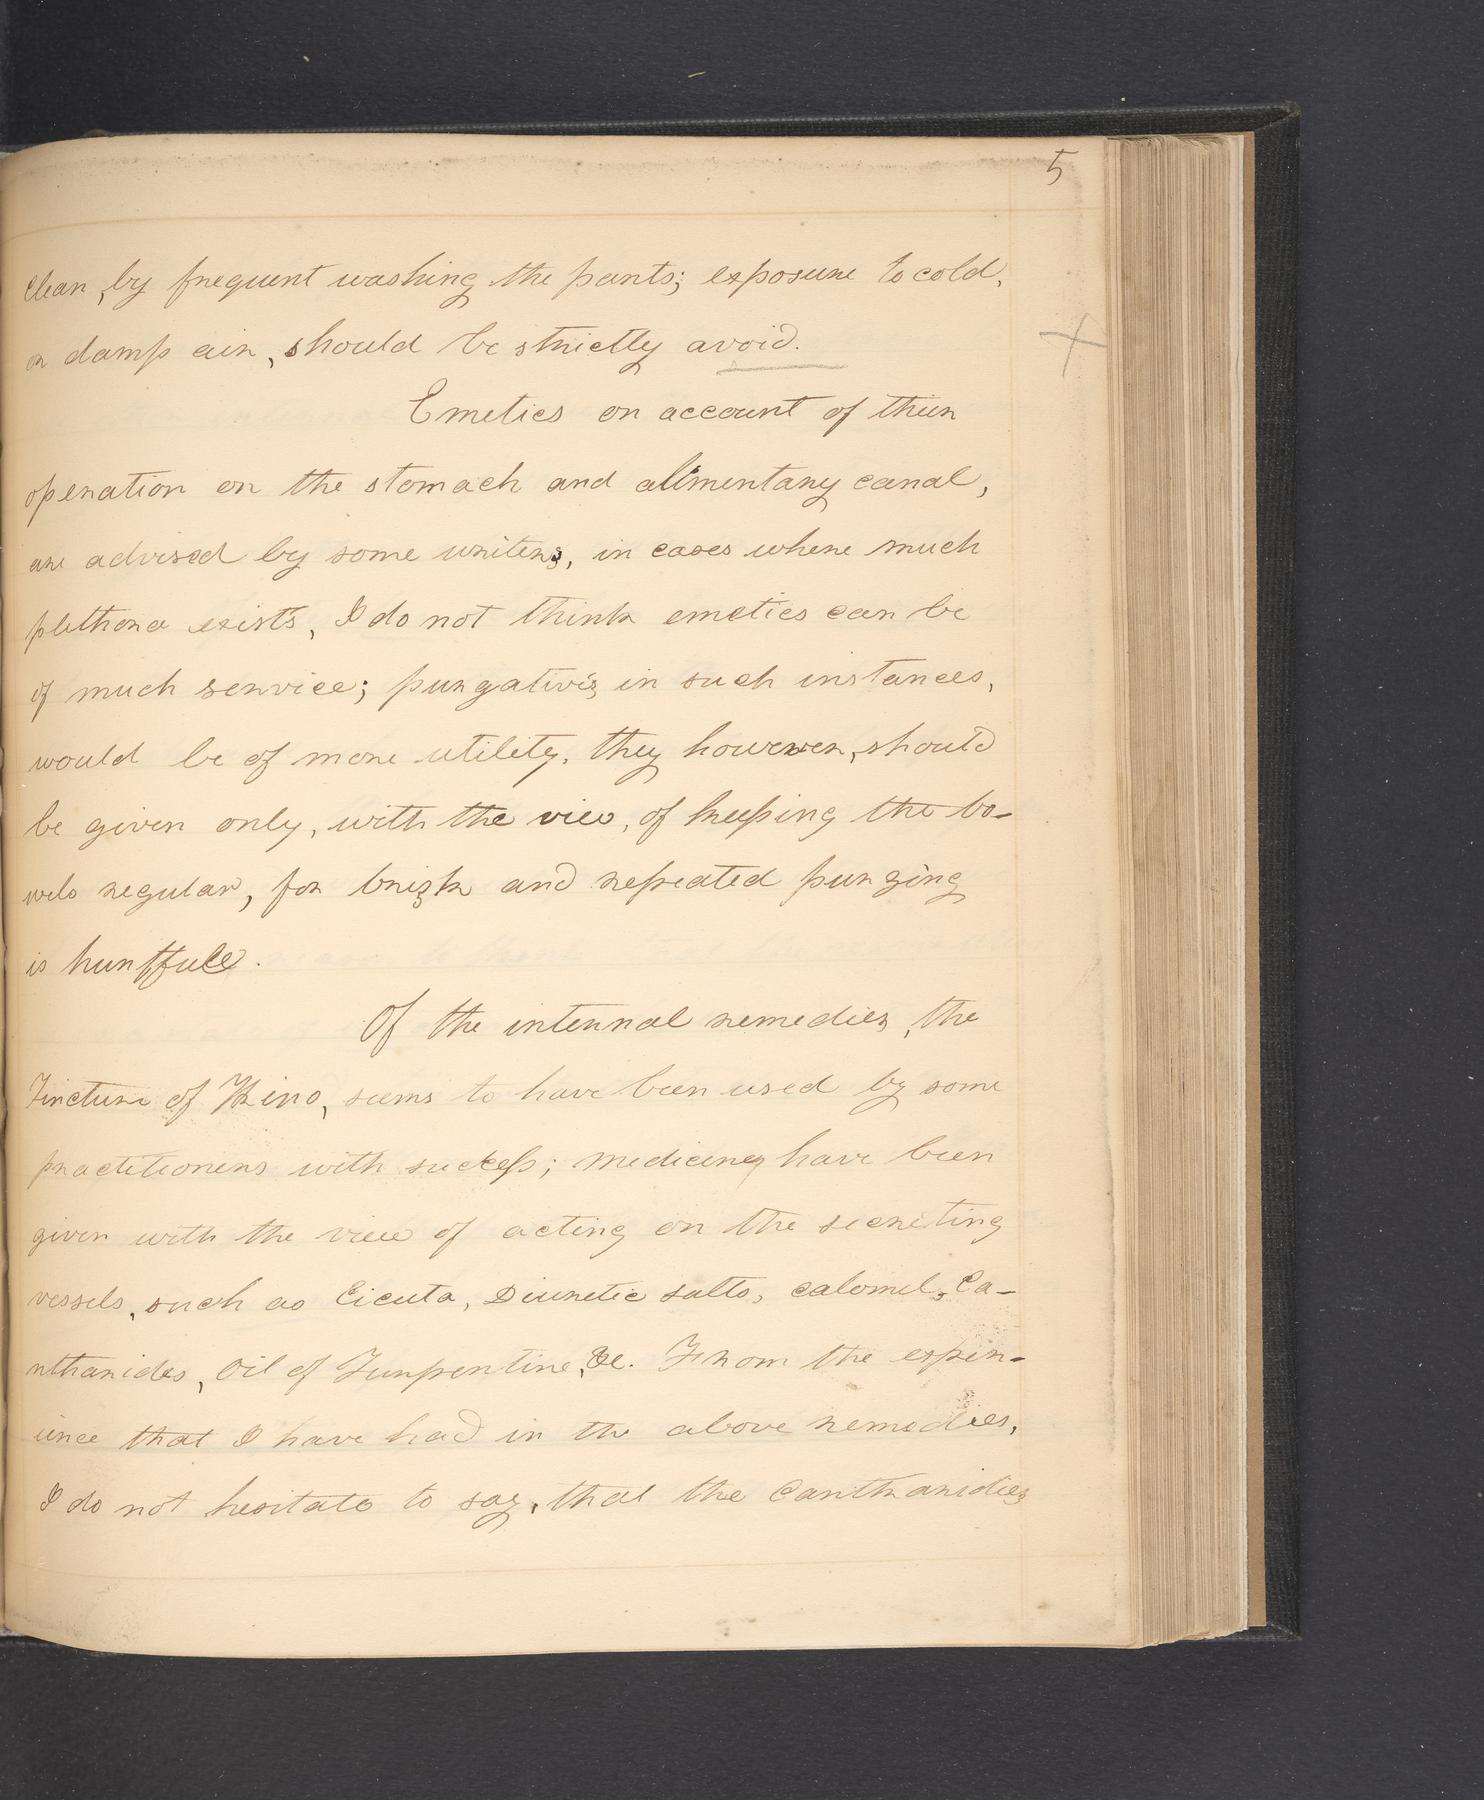 5
clean, by frequent washing the parts; exposure to cold,
or damp air, should be strictly avoid.
Emetics on account of their
operation on the stomach and alimentary canal,
are advised by some writers, in cases where much
plethora exists, I do not think emetics can be
of much service; purgatives in such instances,
would be of more utility, they however, should
be given only, with the view, of keeping the bo-
wels regular, for brisk and repeated purging
is hurtfull.
Of the internal remedies, the
Tincture of Kino, seems to have been used by some
practitioners with suckess; medicines have been
given with the view of acting on the secreting
vessels, such as Cicuta, Diuretic salts, calomel, Ca-
ntharides, Oil of Turpentine, &c. From the exper-
ience that I have had in the above remedies,
I do not hesitate to say, that the Cantharidies